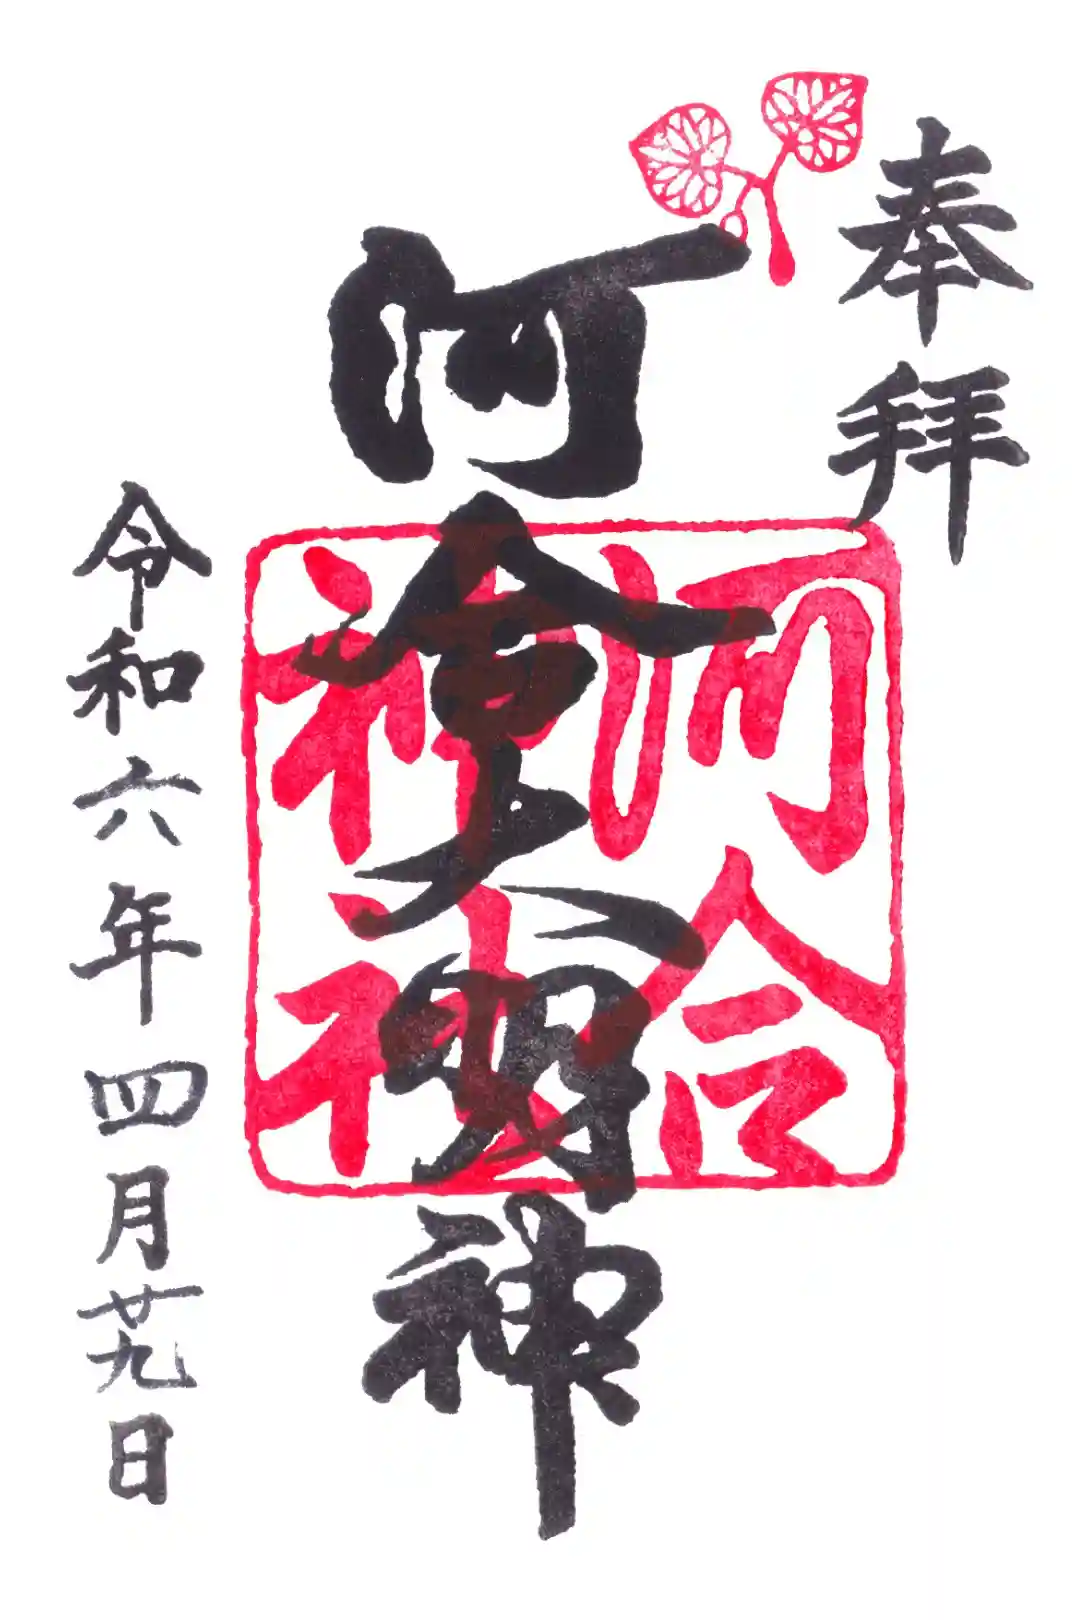 奉拝
河會大明神
河合
神社
令和六年四月廿九日